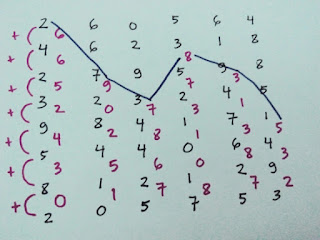 2 6 0 5 6 4
+( 6 8
4 6 2 3 1 8
+( 6
2 7 9 5 9 8
+( 5 9 3
3 2 3 2 4 5
+( 2 0 7 3 1
9 8 4 1 7 1
+( 4 2 8 1 3 5
5 4 4 0 6 4
+( 3 5 6 0 4 3
8 1 2 8 2 9
+( 0 1 7 7 2
2 0 5 7 5 3